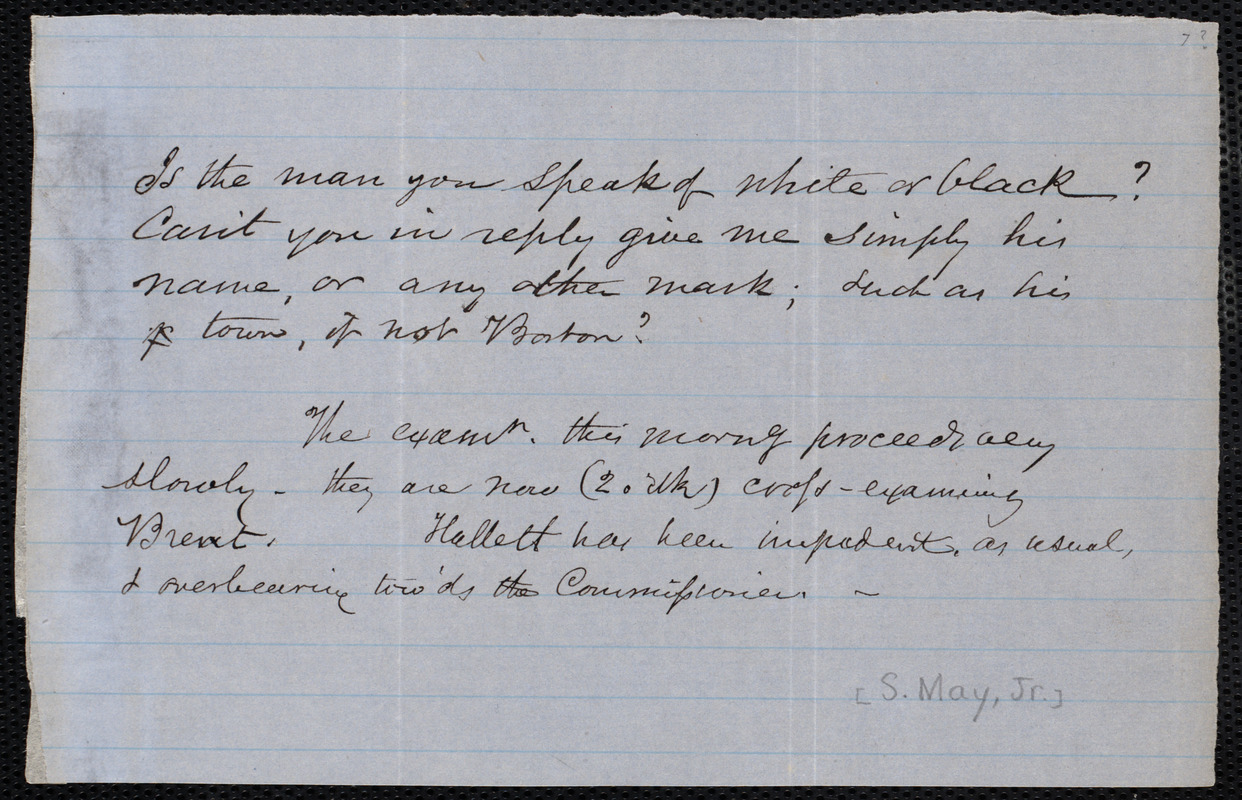 7?
Is the man you speak of white or black?
Can't you in reply give me simply his
name, or any other mark; such as his
town, if not Boston?
The examn. this morng proceeds very
slowly - they are now (2 o'clk) cross-examining
Brent. Hallett has been impudent, as usual,
& overbearing tow'ds the Commissioner. -
[S. May, Jr.]